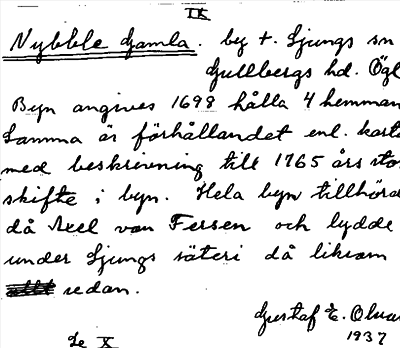 IX
Nybble Gamla. by t. Ljungs sn
Gullbergs hd. Ögl
Byn angives 1698 hålla 4 hemman
Samma är förhållandet enl. karta
med beskrivning till 1765 års stor
skifte i byn. Hela byn tillhörde
då Axel von Fersen och lydde
under Ljungs säteri då liksom
sedan.
Gustaf E. Olsson
1937
Se X